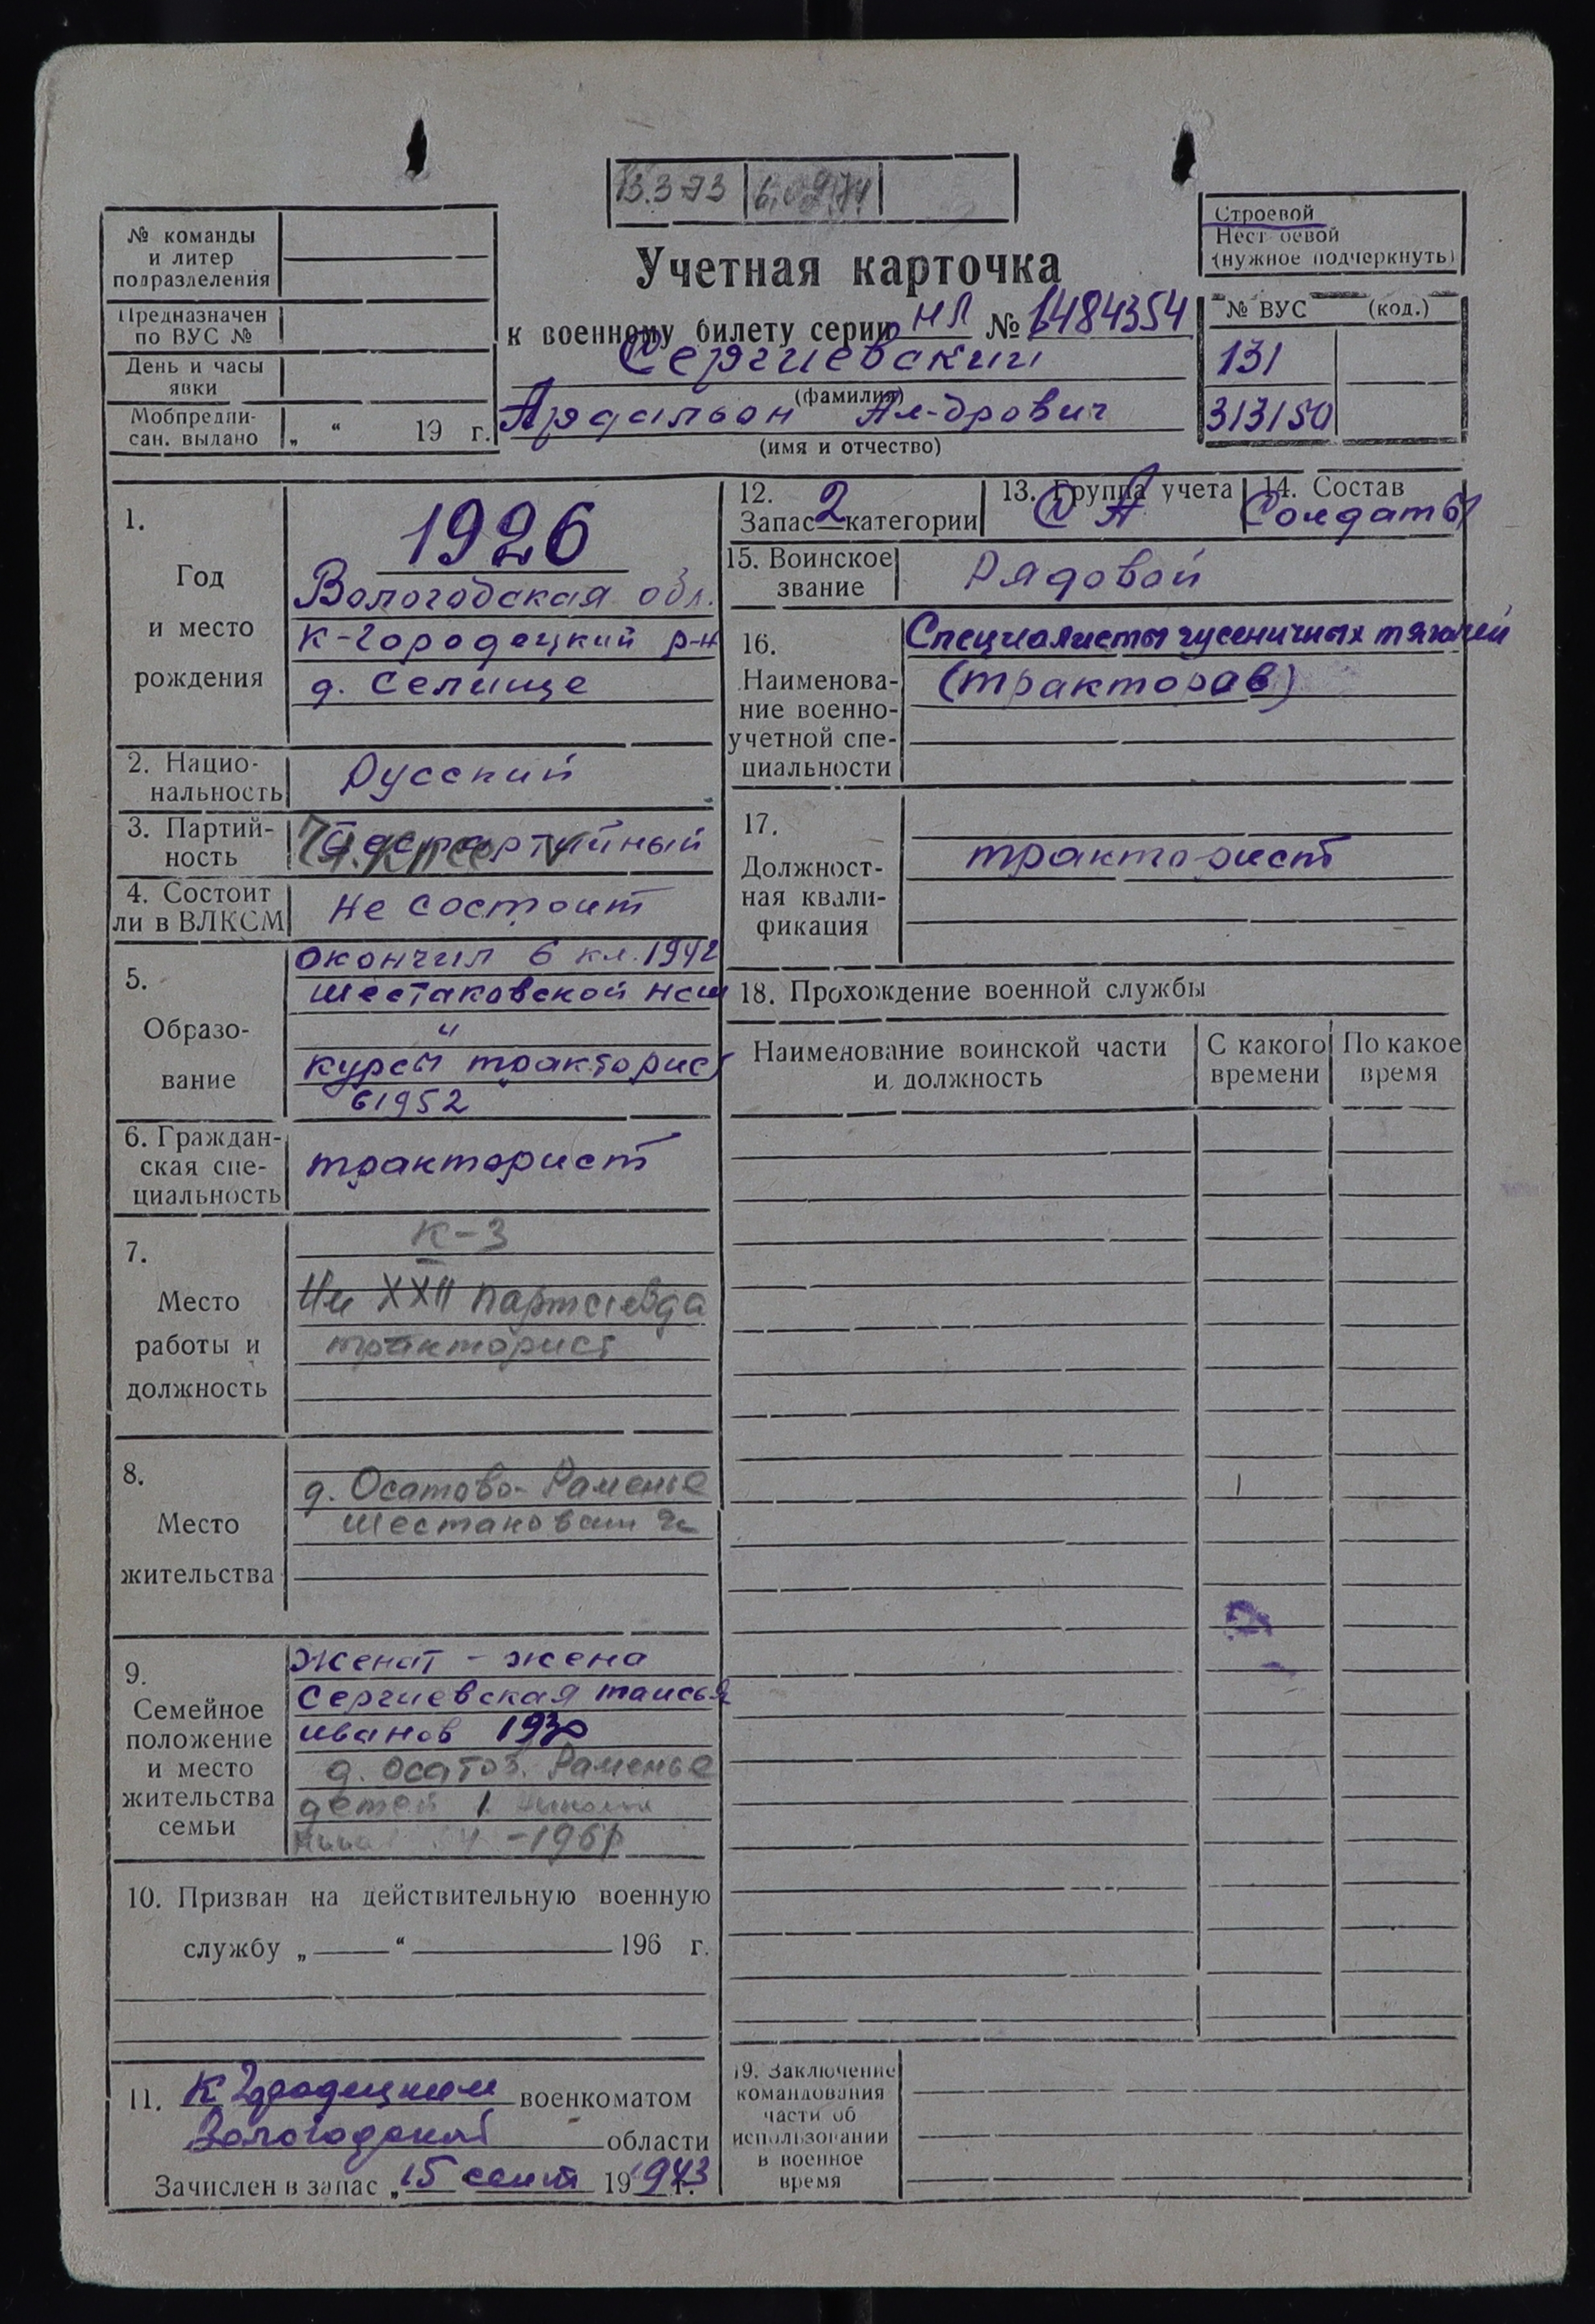 13.3 73
№ команды
и литер
подразделения
Предназначен
по ВУС №
День и часы
явки
Мобпредпи-
сан. выдано „ “ 19 г.
Учетная карточка
к военному билету серии НЛ № 1484354
Сергиевский
(фамилия)
Ардальон Ал-дрович
(имя и отчество)
Строевой
Нестроевой
(нужное подчеркнуть)
№ ВУС (код.)
131
313150
1.
Год
и место
рождения
1926
Вологодская обл.
К-Городецкий р-н
д. Селище
2. Нацио-
нальность
Русский
3. Партий-
ность
Беспартийный
Чл. КПСС
4. Состоит
ли в ВЛКСМ
Не состоит
5.
Образо-
вание
окончил 6 кл. 1942
Шестаковской нсш
"
курсы тракторист
в 1952
6. Граждан-
ская спе-
циальность
тракторист
7.
Место
работы и
должность
К-3
Им XXII партсъезда
тракторист
8.
Место
жительства
д. Осатово-Раменье
9.
Семейное
положение
и место
жительства
семьи
Женат - жена
Сергиевская Таисья
Иванов 1930
д. Осатов. Раменье
детей 1
10. Призван на действительную военную
службу „ “ 196 г.
11. К Городецким военкоматом
Вологодской области
Зачислен в запас „15 сент 19 1943 г.
12.
Запас 2 категории
13. Группа учета
СА
14. Состав
Солдаты
15. Воинское
звание
Рядовой
16.
Наименова-
ние военно-
учетной спе-
циальности
Специалисты гусеничных тягачей
(тракторов)
17.
Должност-
ная квали-
фикация
тракторист
18. Прохождение военной службы
Наименование воинской части
и должность
С какого
времени
По какое
время
19. Заключение
командования
части об
использовании
в военное
время